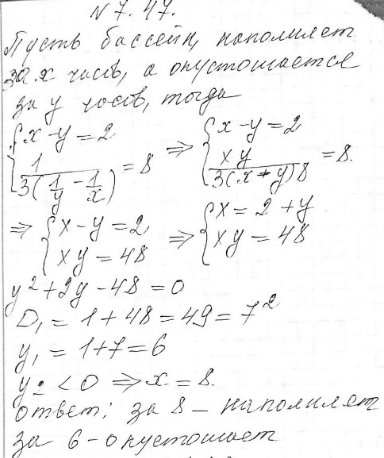 N 7.47.
Пусть бассейн, наполняет
за x часов, а опустошается
за y часов, тогда
{x-y=2 {1/(3(1/y-1/x))=8 => {x-y=2 {xy/(3(x+y)8=8.
=> {x-y=2 {xy=48 => {x=2+y {xy=48
y²+2y-48=0
D₁=1+48=49=7²
y₁=1+7=6
y₂<0 => x=8.
ответ: за 8 - наполняет
за 6 - опустошает